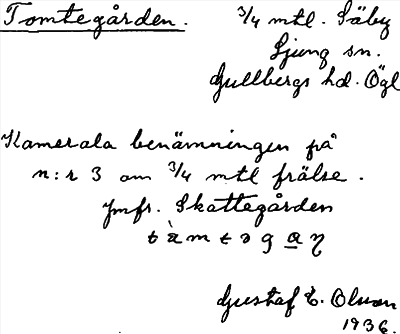 Tomtegården. 3/4 mtl. Säby
Ljung sn.
Gullbergs hd. Ögl
Kamerala benämningen på
n:r 3 om 3/4 mtl frälse.
Jmfr. Skattegården
t à m t ə g a̲ ŋ
Gustaf E. Olsson
1936.